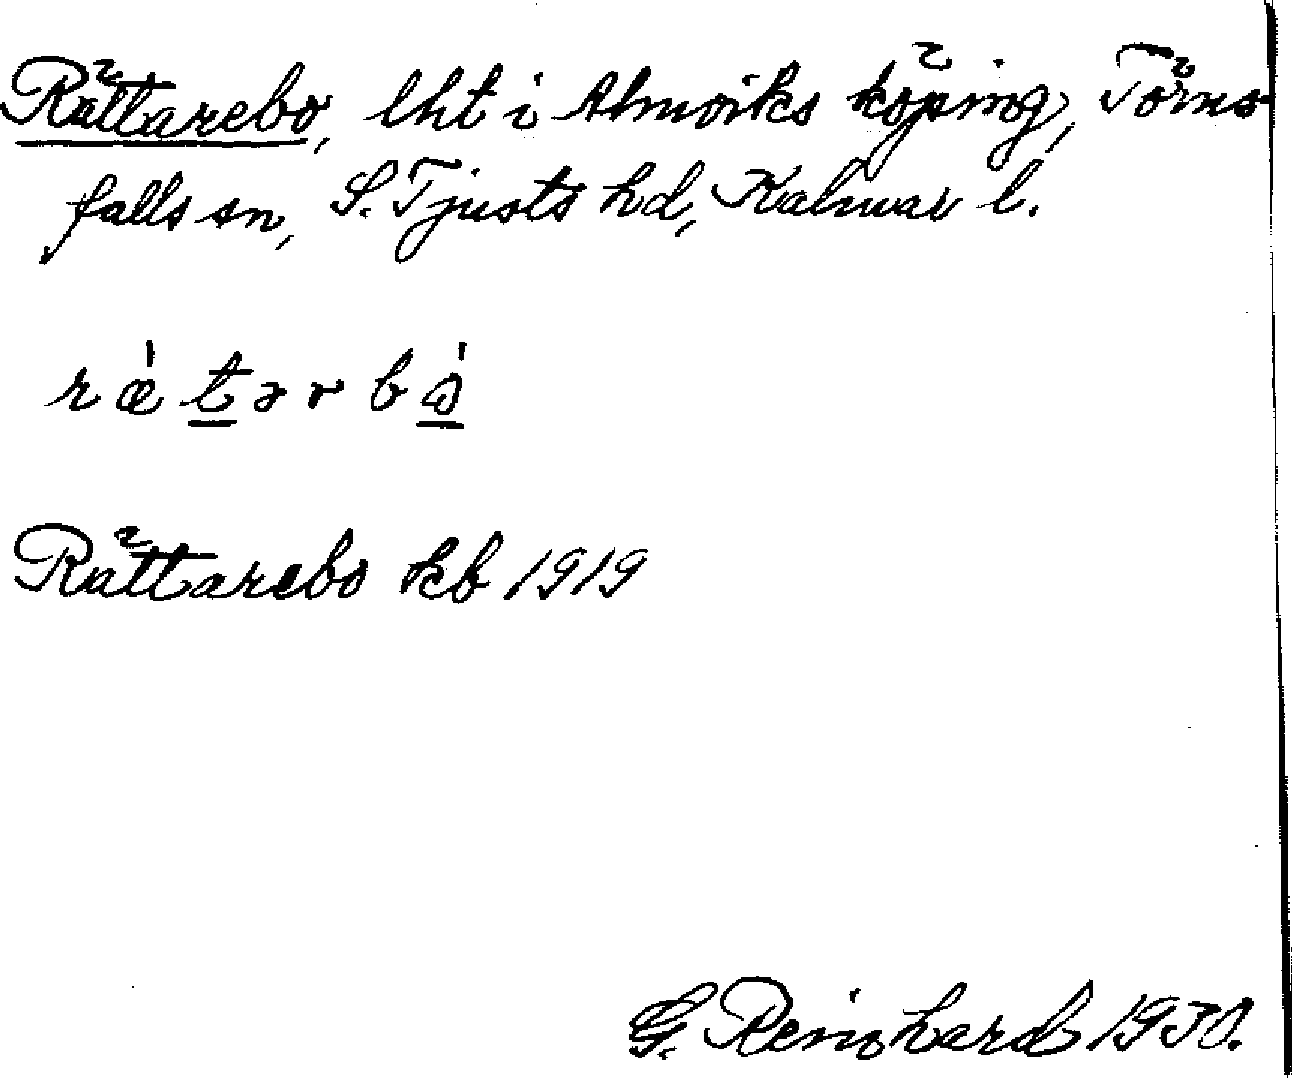 Rättarebo, lht i Almviks köping, Törns-
falls sn, S. Tjusts hd, Kalmar l.
Rättarebo kb 1919
G. Reinhard 1950.